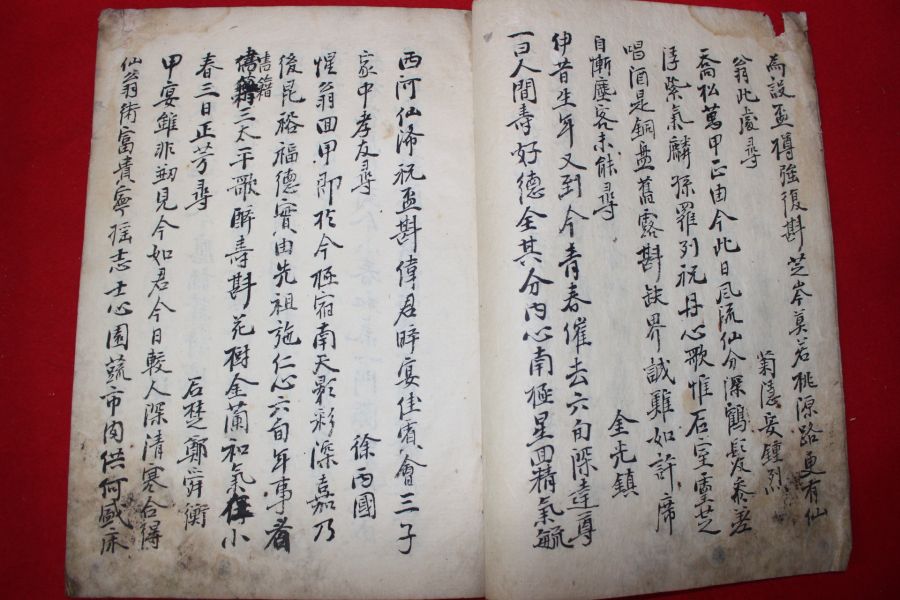 為設盃樽強復斟芝岑莫若桃源路更有仙
翁此處尋
菊隱安鍾烈
喬松萬甲正由今此日風流仙分深鶴髮參差
浮紫氣麟孫羅列祝丹心歌惟石室靈芝
唱酒是銅盤舊露斟缺界誠難如許席
自慚塵客未能尋
金光鎮
伊昔生年又到今青春催去六旬深遠尊
一曰人間壽好德全其分內心南極星回精氣毓
西河仙浠祝盃斟偉君晬宴佳賓會三子
家中孝友尋
徐丙國
惺翁回甲即於今極宿南天彩彩深嘉乃
後昆裕福德實由先祖施仁心六旬年事看
書籍
三太平歌酔壽斟花樹金蘭和氣小
春三日正芳尋
石楚鄭舜衡
甲宴雖非刱見今如君今日較人深清寒合得
仙翁術富貴寧搖志士心園蔬市肉供何盛床